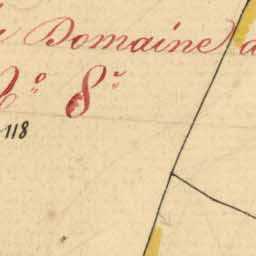 Domaine)
N.º 8.º
118